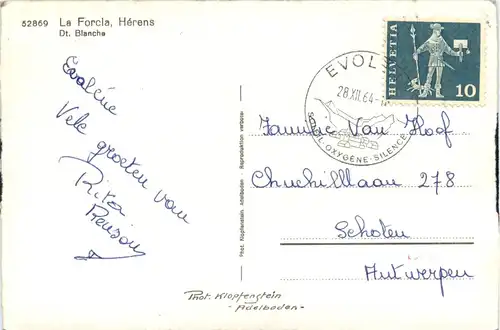 52869 La Forcla, Hérens
Dt. Blanche
Evolène
Vele groeten van
Rika
HELVETIA
10
EVOL
28.XII.64
SOLEIL-OXYGÈNE-SILENCE
Familie Van Hoof
Churchilllaan 278
Schoten
Antwerpen
Phot. Klopfenstein, Adelboden - Reproduktion verboten
Phot. Klopfenstein
- Adelboden -